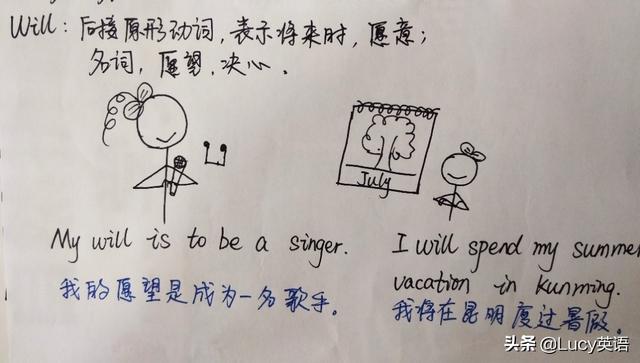 Will：后接原形动词，表示将来时，愿意；
名词，愿望，决心。
July
My will is to be a singer.
我的愿望是成为一名歌手。
I will spend my summer
vacation in kunming.
我将在昆明度过暑假。
头条 @Lucy英语